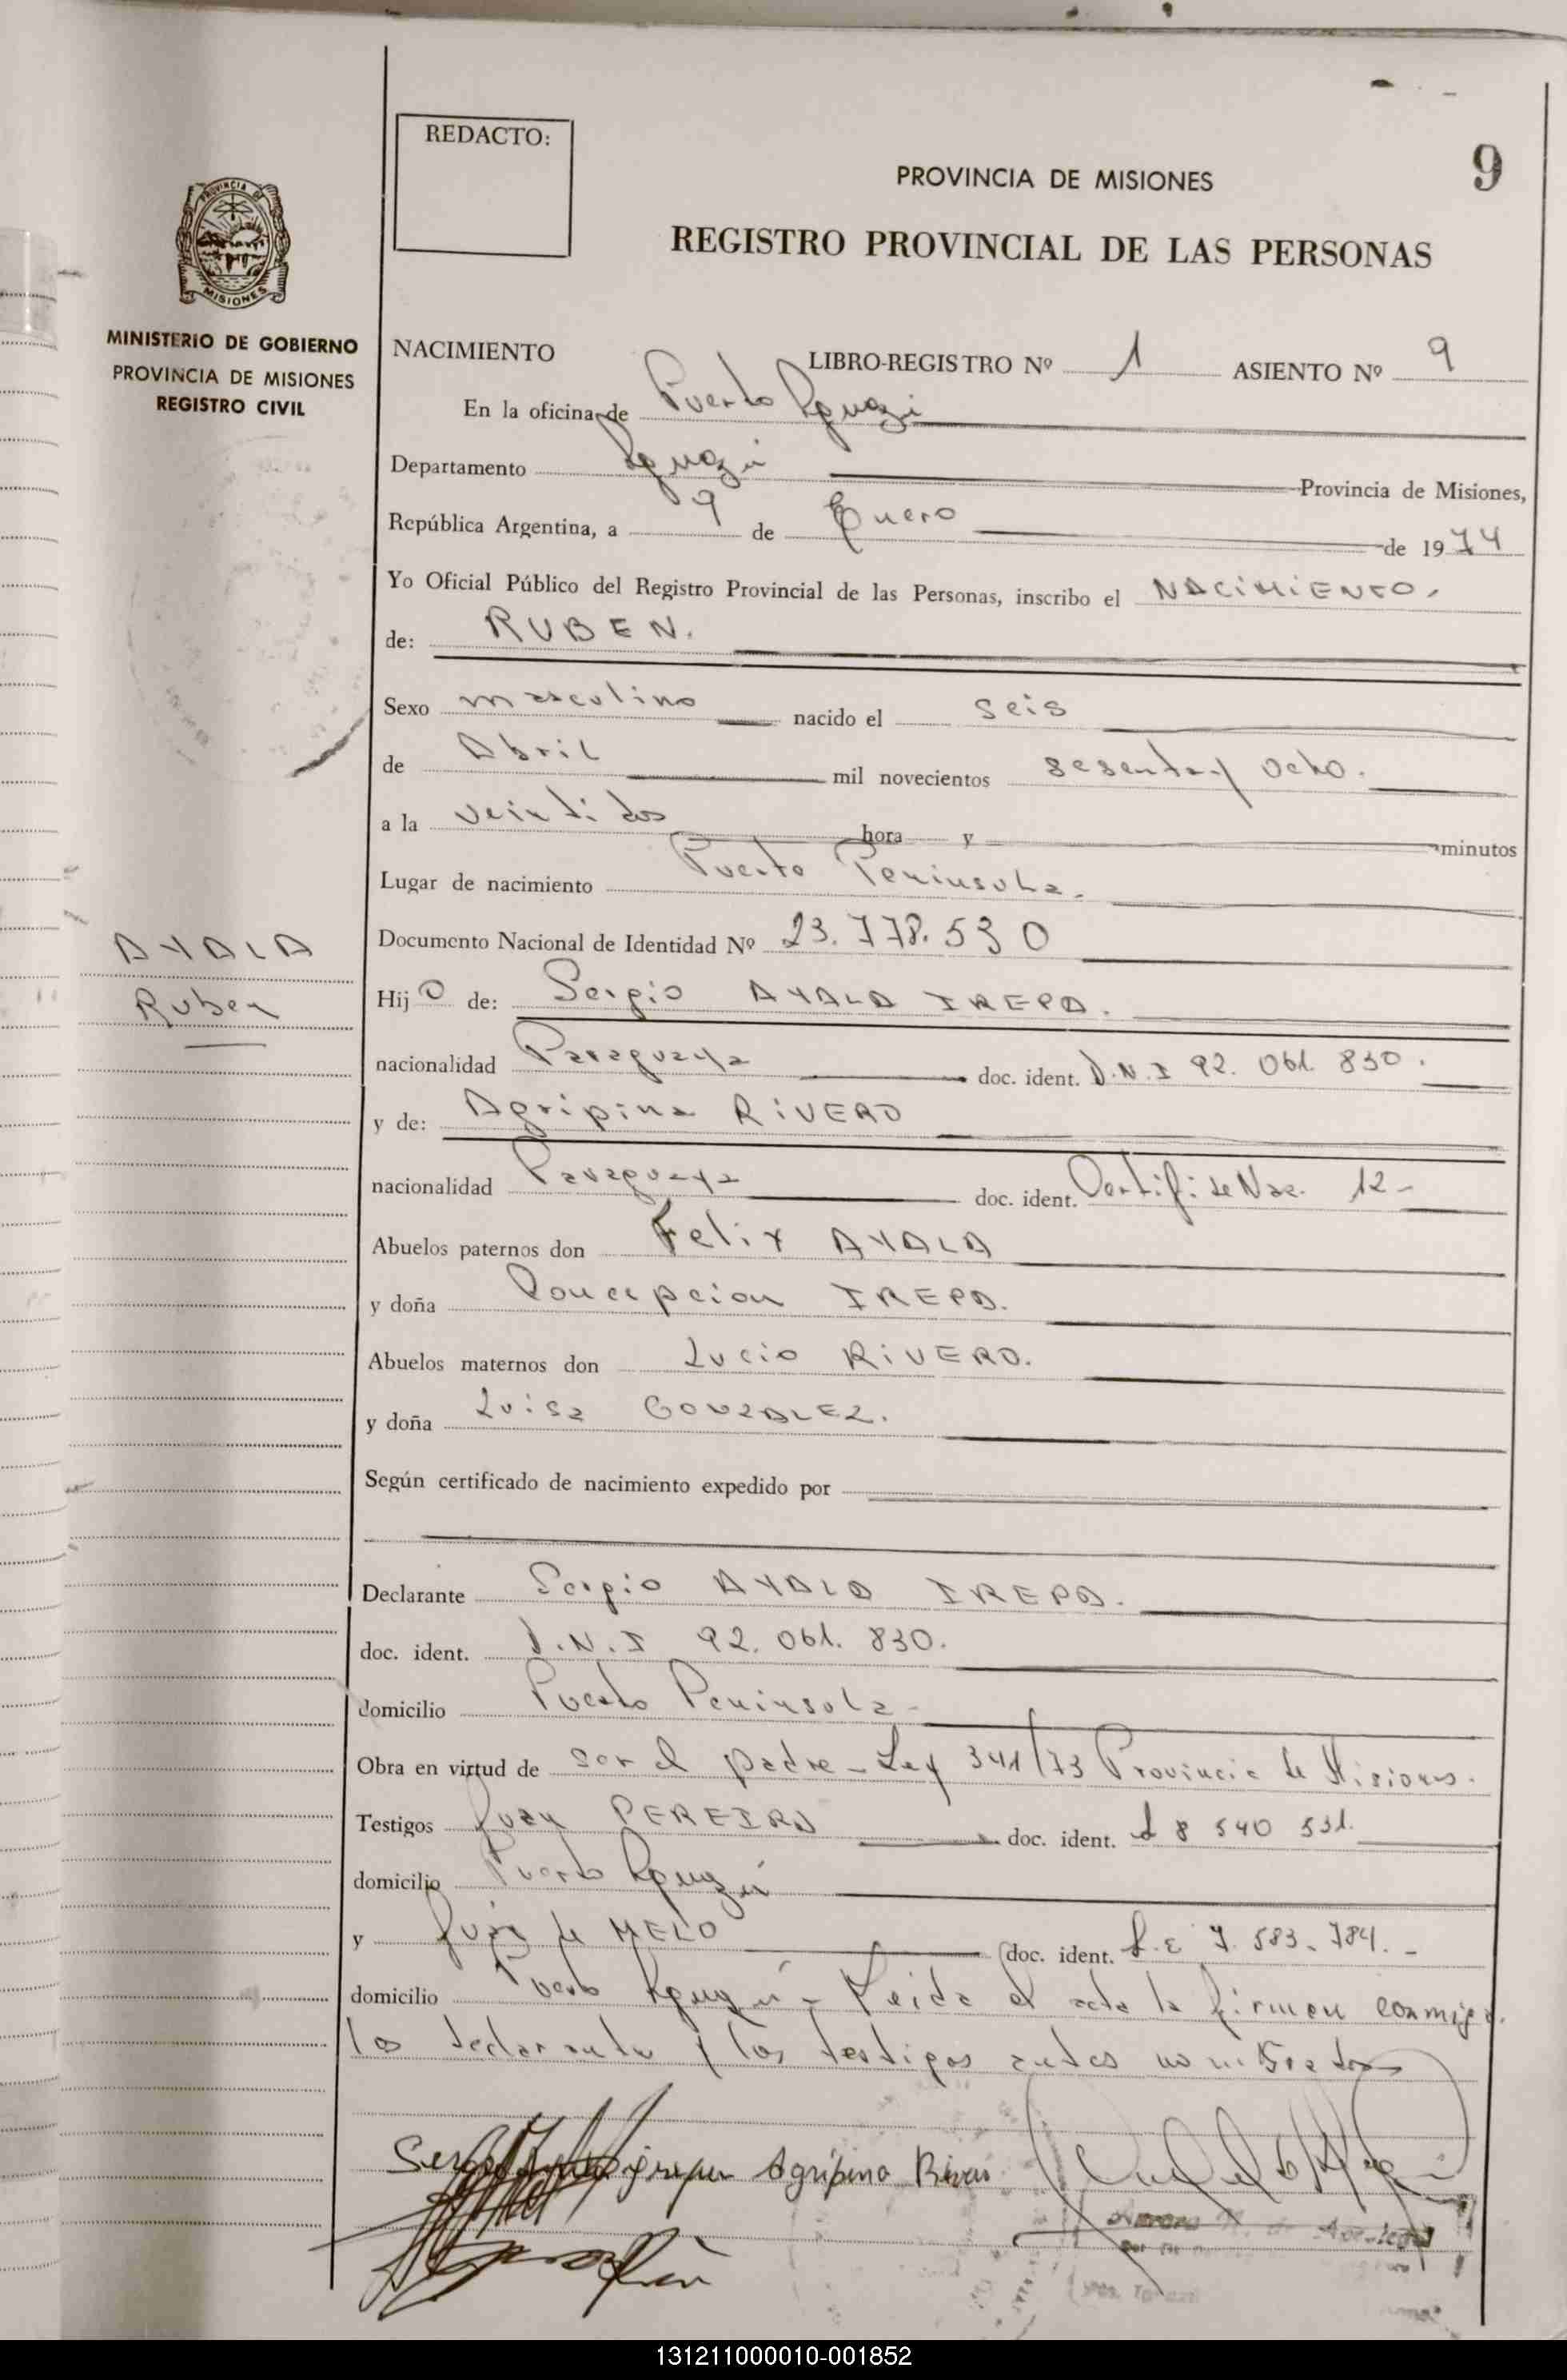 REDACTO:
9
PROVINCIA DE MISIONES
REGISTRO PROVINCIAL DE LAS PERSONAS
PROVINCIA DE
MISIONES
MINISTERIO DE GOBIERNO
PROVINCIA DE MISIONES
REGISTRO CIVIL
AYALA
Ruben
NACIMIENTO LIBRO-REGISTRO Nº 1 ASIENTO Nº 9
En la oficina de Puerto Iguazú
Departamento Iguazú Provincia de Misiones,
República Argentina, a 9 de Enero de 1974
Yo Oficial Público del Registro Provincial de las Personas, inscribo el NACiMiENTO.
de: RUBEN.
Sexo masculino nacido el seis
de Abril mil novecientos sesenta y ocho.
a la veintidos hora y minutos
Lugar de nacimiento Puerto Peninsula.
Documento Nacional de Identidad Nº 23.778.530
Hijo de: Sergio AYALA IREPA.
nacionalidad Paraguaya doc. ident. D.N.I 92. 061. 830.
y de: Agripina RiVERO
nacionalidad Paraguaya doc. ident. Certifi. de Nac. 12-
Abuelos paternos don Felix AYALA
y doña Concepcion IREPA.
Abuelos maternos don Lucio RiVERO.
y doña Luisa GONZALEZ.
Según certificado de nacimiento expedido por
Declarante Sergio AYALA IREPA.
doc. ident. D.N.I 92. 061. 830.
domicilio Puerto Peninsula -
Obra en virtud de ser el padre - Ley 341/73 Provincia de Misiones.
Testigos Juan PEREIRA doc. ident. 8 540 531.
domicilio Puerto Iguazú
y Juan de MELO doc. ident. L.E 7. 583. 784. -
domicilio Puerto Iguazú - Leida el acta la firman conmigo.
los declarante y los testigos antes nominados
Agripina
131211000010-001852